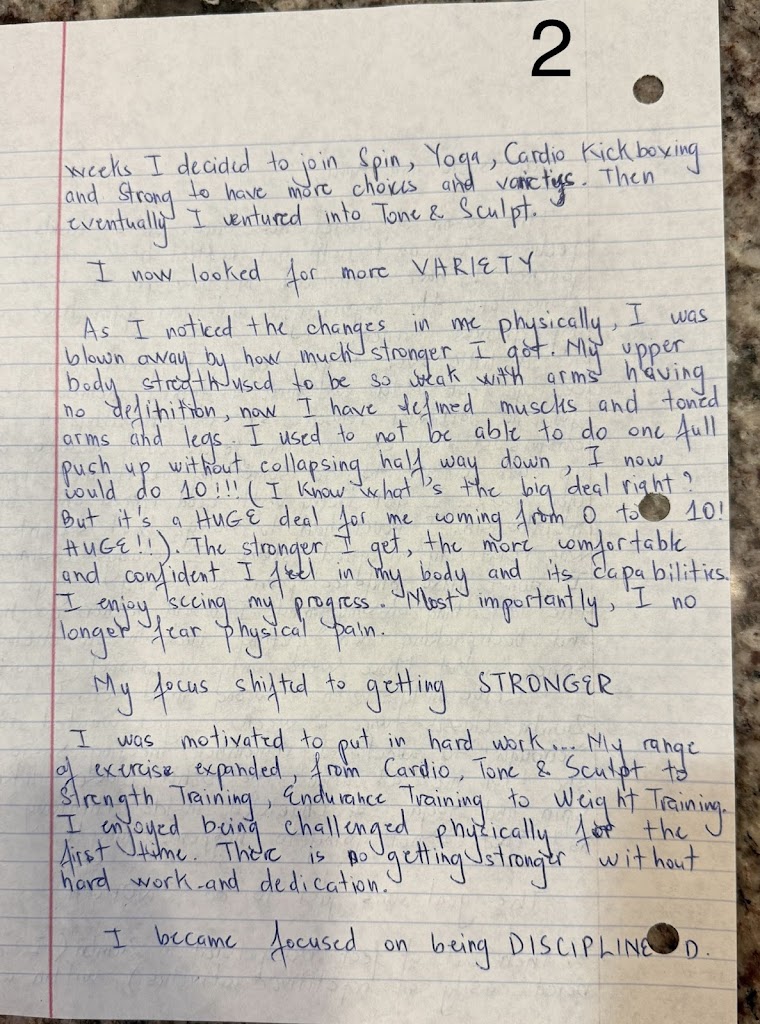 2
weeks I decided to join Spin, Yoga, Cardio Kickboxing
and Strong to have more choices and varietys. Then
eventually I ventured into Tone & Sculpt.
I now looked for more VARIETY
As I noticed the changes in me physically, I was
blown away by how much stronger I got. My upper
body stregth used to be so weak with arms having
no definition, now I have defined muscles and toned
arms and legs. I used to not be able to do one full
push up without collapsing half way down, I now
could do 10!!! (I know what's the big deal right?
But it's a HUGE deal for me coming from 0 to 10!
HUGE!!). The stronger I get, the more comfortable
and confident I feel in my body and its capabilities.
I enjoy seeing my progress. Most importantly, I no
longer fear physical pain.
My focus shifted to getting STRONGER
I was motivated to put in hard work... My range
of exercise expanded, from Cardio, Tone & Sculpt to
Strength Training, Endurance Training to Weight Training.
I enjoyed being challenged physically for the
first time. There is no getting stronger without
hard work and dedication.
I became focused on being DISCIPLINED.